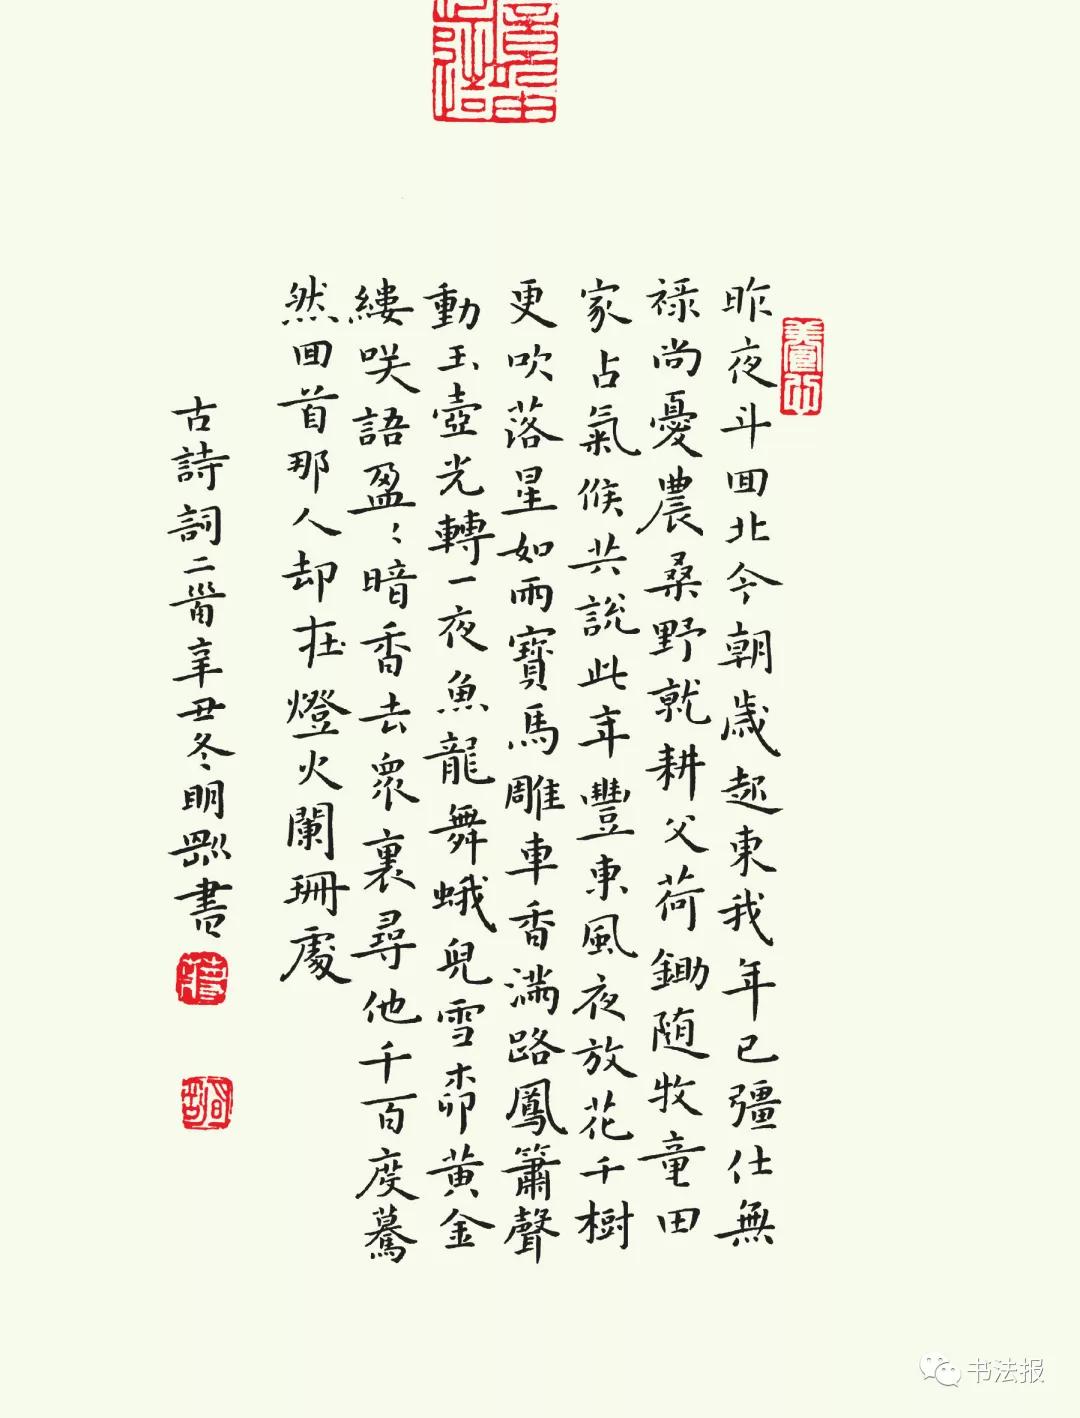 昨夜斗回北今朝歲起東我年已彊仕無
祿尚憂農桑野就耕父荷鋤随牧童田
家占氣候共說此年豐東風夜放花千樹
更吹落星如雨寶馬雕車香滿路鳳簫聲
動玉壺光轉一夜魚龍舞蛾兒雪柳黄金
縷咲語盈〻暗香去衆裏尋他千百度驀
然回首那人却在燈火闌珊處
古詩詞二首辛丑冬明書
书法报